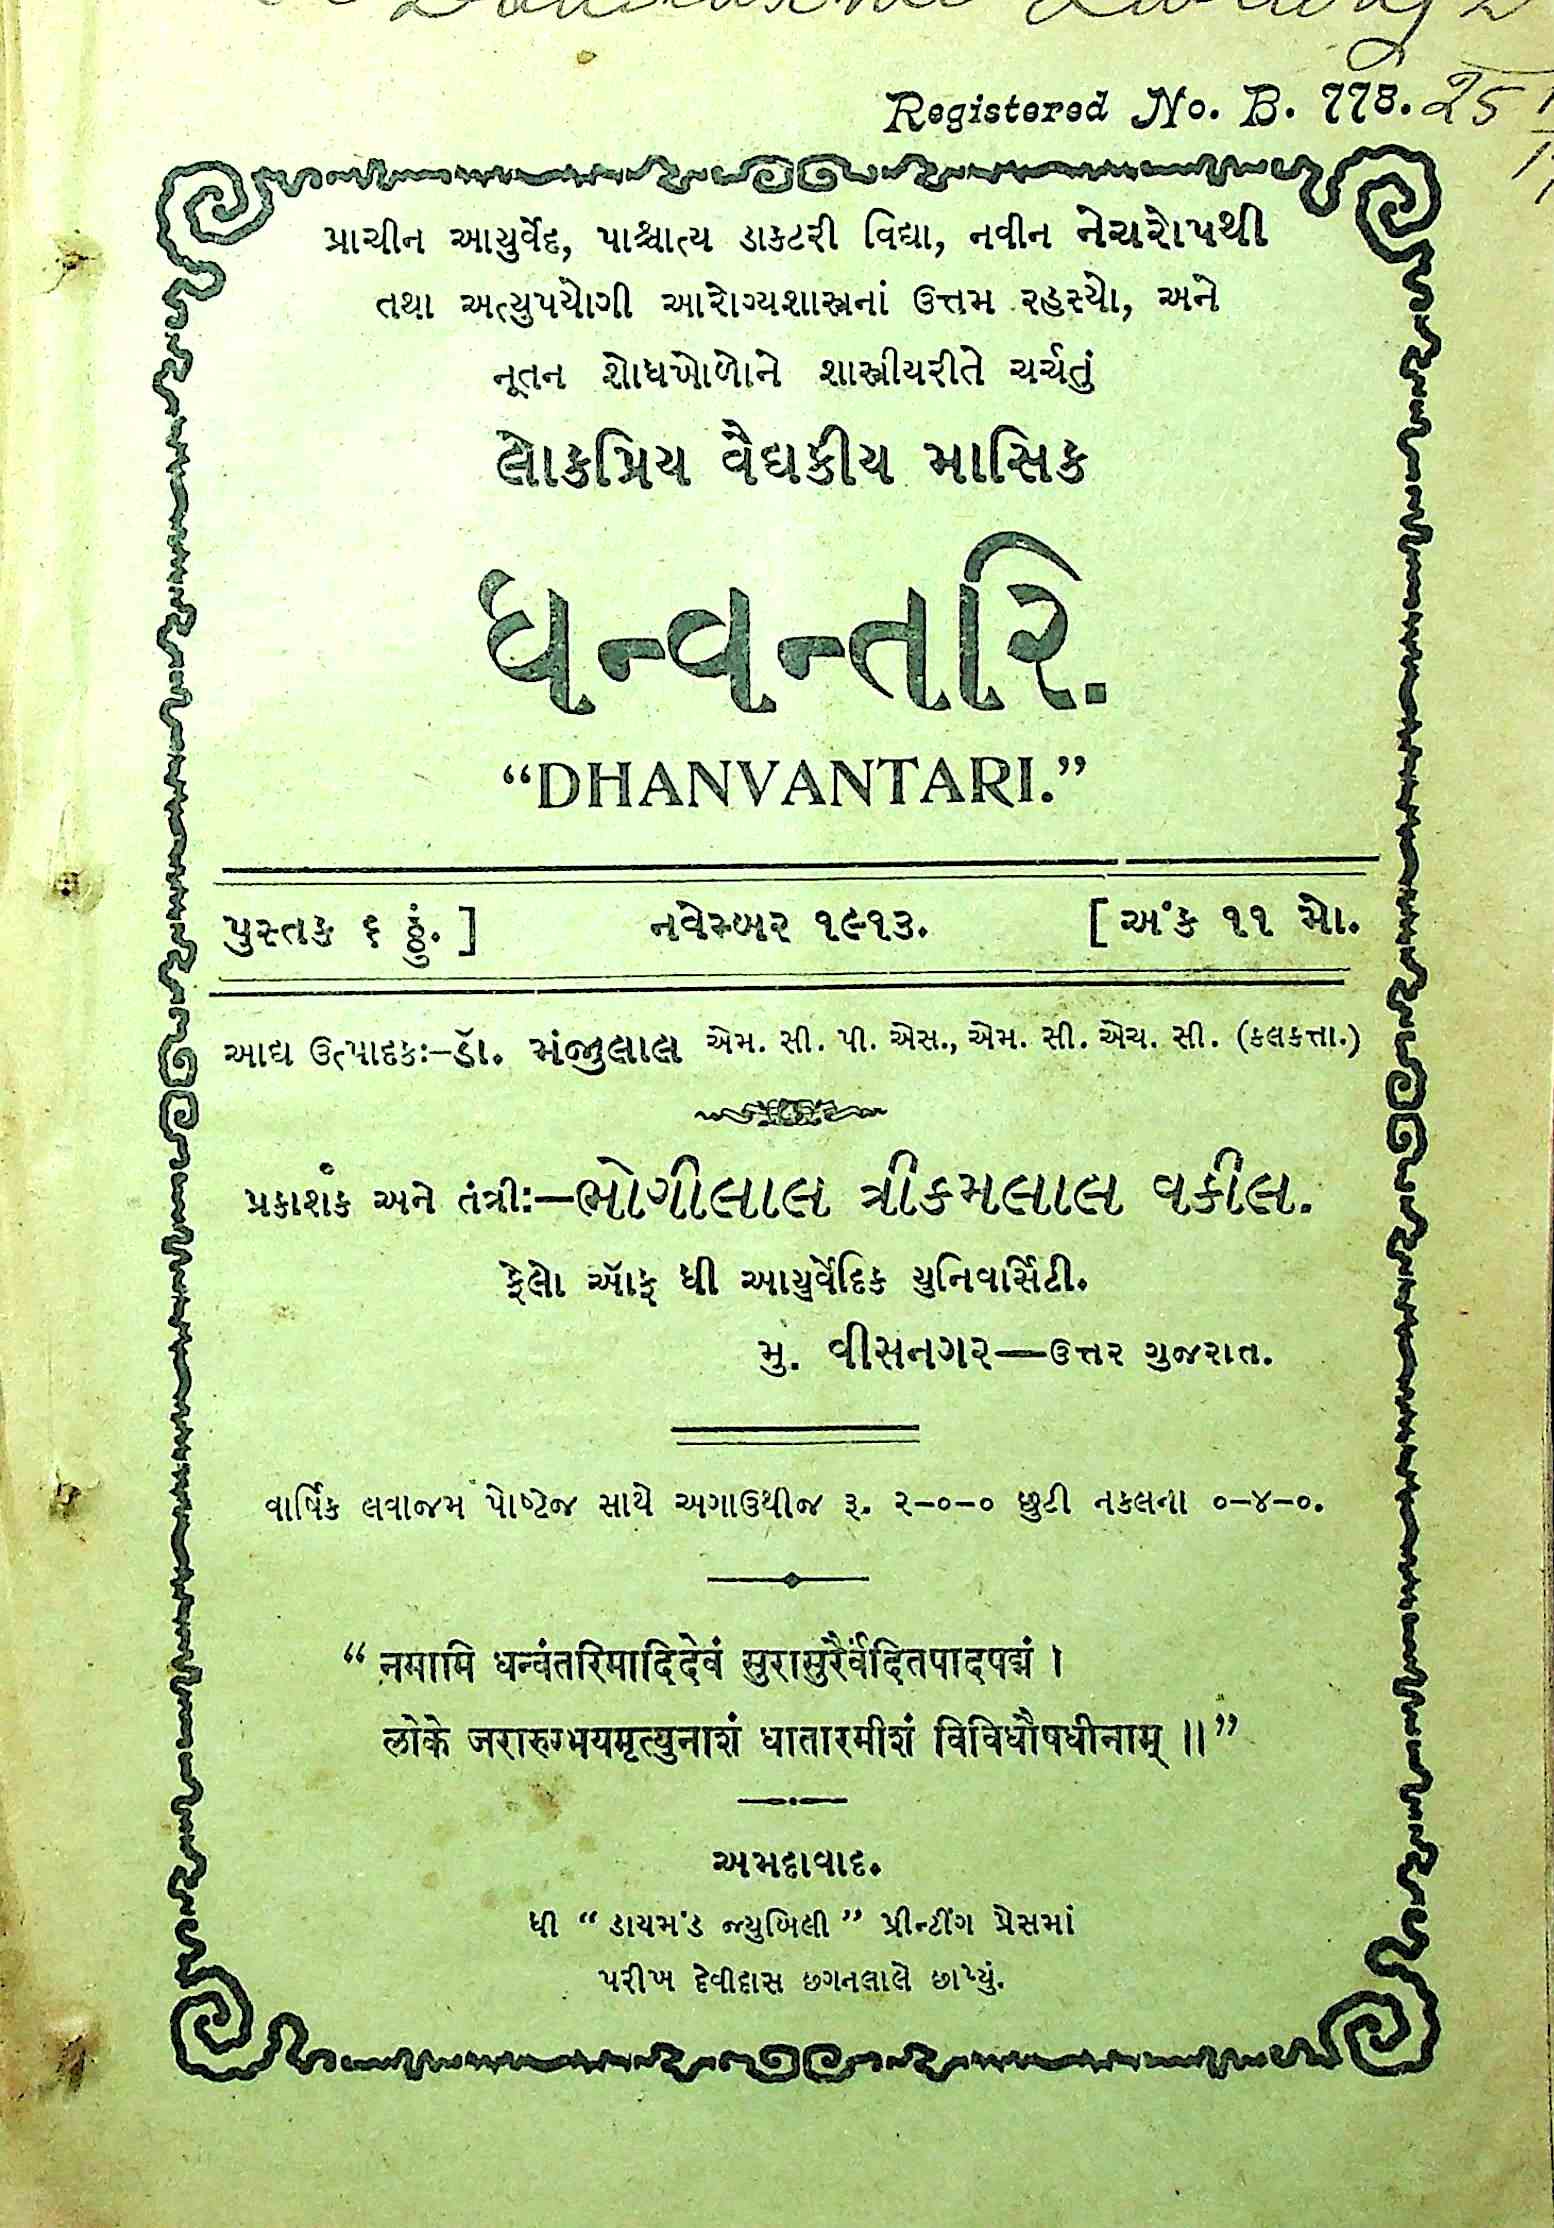 Registered No. B. 778. 25
પ્રાચીન આયુર્વેદ, પાશ્ચાત્ય ડાકટરી વિદ્યા, નવીન નેચરોપથી
તથા અત્યુપયોગી આરોગ્યશાસ્ત્રનાં ઉત્તમ રહસ્યો, અને
નૂતન શોધખોળોને શાસ્ત્રીયરીતે ચર્ચતું
લોકપ્રિય વૈદ્યકીય માસિક
ધન્વન્તરિ.
“DHANVANTARI.”
પુસ્તક ૬ ઠ્ઠું. ] નવેમ્બર ૧૯૧૩. [ અંક ૧૧ મો.
આદ્ય ઉત્પાદકઃ–ડૉ. મંજુલાલ એમ. સી. પી. એસ., એમ. સી. એચ. સી. (કલકત્તા.)
પ્રકાશક અને તંત્રીઃ—ભોગીલાલ ત્રીકમલાલ વકીલ.
ફેલો ઑફ ધી આયુર્વેદિક યુનિવર્સિટી.
મુ. વીસનગર—ઉત્તર ગુજરાત.
વાર્ષિક લવાજમ પોષ્ટેજ સાથે અગાઉથીજ રૂ. ૨–૦–૦ છુટી નકલના ૦–૪–૦.
“ नमामि धन्वंतरिमादिदेवं सुरासुरैर्वंदितपादपद्मं ।
लोके जरारुग्भयमृत्युनाशं धातारमीशं विविधौषधीनाम् ॥”
અમદાવાદ.
ધી “ ડાયમંડ જ્યુબિલી ” પ્રીન્ટીંગ પ્રેસમાં
પરીખ દેવીદાસ છગનલાલે છાપ્યું.